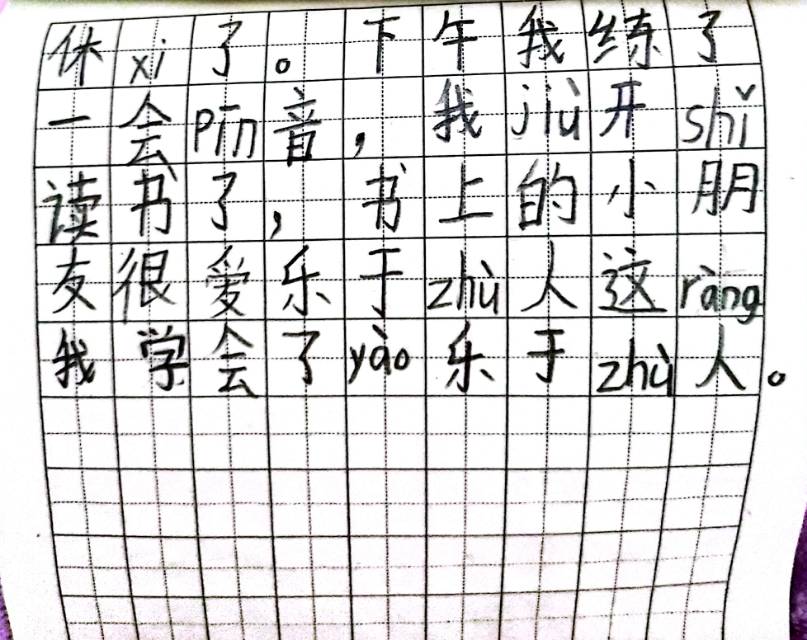 休xi了。下午我练了
一会pīn音，我jiù开shǐ
读书了，书上的小朋
友很爱乐于zhù人这ràng
我学会了yào乐于zhù人。